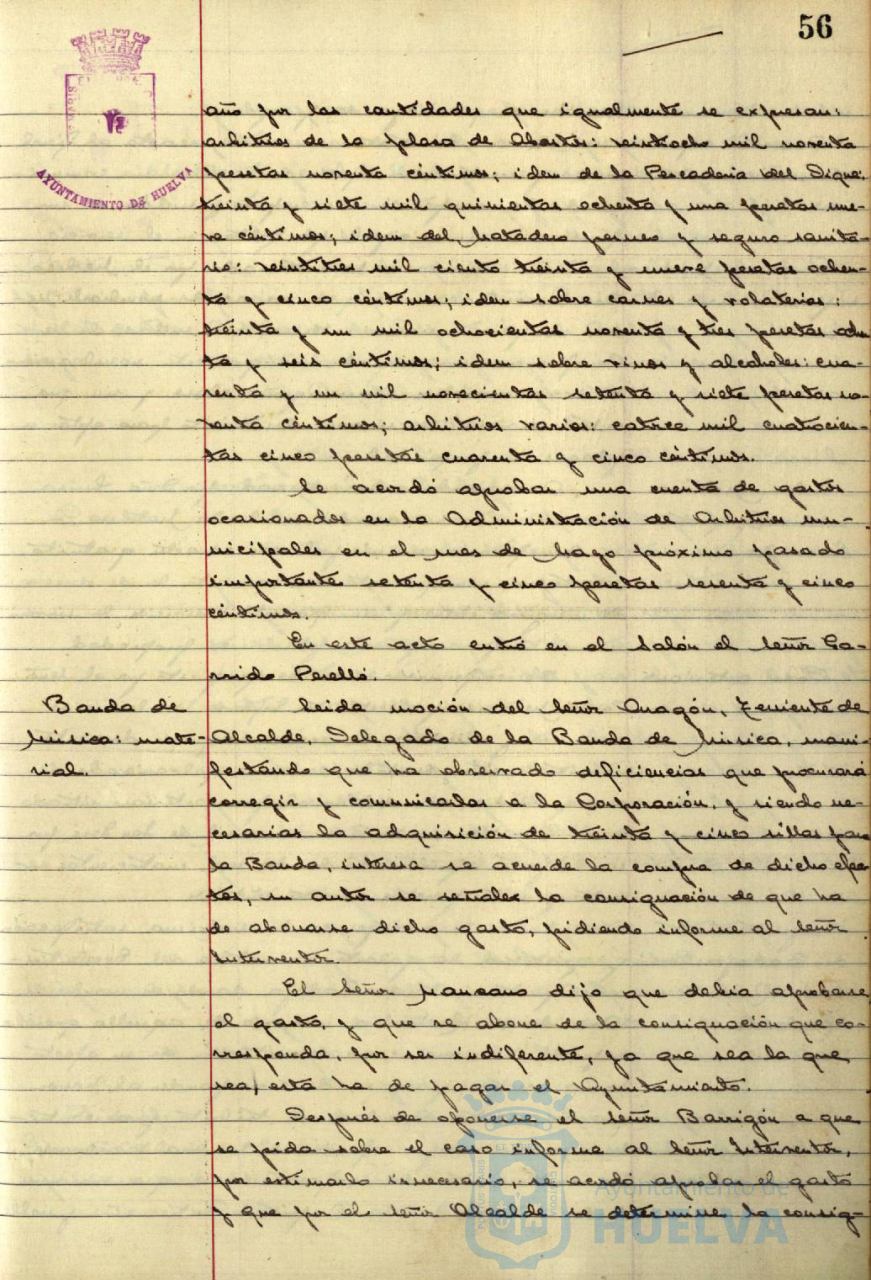 56
AYUNTAMIENTO DE HUELVA
año por las cantidades que igualmente se expresan:
arbitrios de la plaza de Abastos: veintiocho mil noventa
pesetas noventa céntimos; idem de la Pescaderia del Dique:
treinta y siete mil quinientas ochenta y una pesetas nue-
ve céntimos; idem del matadero perneo y seguro sanita-
rio: veintitres mil ciento treinta y nueve pesetas ochen-
ta y cinco céntimos; idem sobre carnes y volaterias:
treinta y un mil ochocientas noventa y tres pesetas
ta y seis céntimos; idem sobre vinos y alcoholes: cua-
renta y un mil novecientas setenta y siete pesetas no-
venta céntimos; arbitrios varios: catorce mil cuatrocien-
tas cinco pesetas cuarenta y cinco céntimos.
Se acordó aprobar una cuenta de gastos
ocasionados en la Administración de Arbitrios mu-
nicipales en el mes de Mayo próximo pasado
importante setenta y cinco pesetas sesenta y cinco
céntimos.
En este acto entró en el Salón el Señor Ga-
rrido Perelló.
Banda de
Música: mate-
rial.
Leida moción del Señor Aragón, Teniente de
Alcalde, Delegado de la Banda de Música, mani-
festando que ha observado deficiencias que procurará
corregir y comunicarlas a la Corporación, y siendo ne-
cesarias la adquisición de treinta y cinco sillas para
la Banda, interesa se acuerde la compra de dicho efec-
tos, su autor se señale la consignación de que ha
de abonarse dicho gasto, pidiendo informe al Señor
Interventor.
El Señor Manzano dijo que debia aprobarse
el gasto, y que se abone de la consignación que co-
rresponda, por ser indiferente, ya que sea la que
sea, esta ha de pagar el Ayuntamiento.
Después de oponerse el Señor Barrigón a que
se pida sobre el caso informe al Señor Interventor,
por estimarlo innecesario, se acordó aprobar el gasto
y que por el Señor Alcalde se determine la consig-
Ayuntamiento de
HUELVA